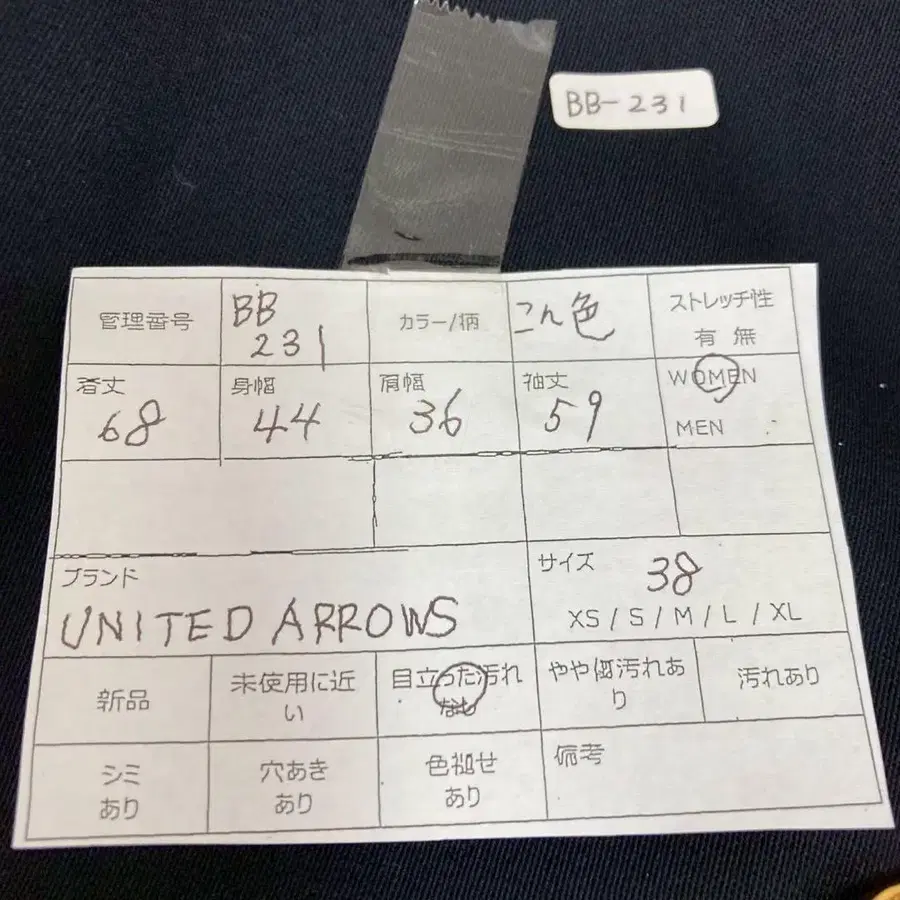 BB-231
管理番号
BB
231
カラー/柄
こん色
ストレッチ性
有 無
着丈
68
身幅
44
肩幅
36
袖丈
59
WOMEN
MEN
ブランド
UNITED ARROWS
サイズ
38
XS / S / M / L / XL
新品
未使用に近
い
目立った汚れ
なし
やや傷汚れあ
り
汚れあり
シミ
あり
穴あき
あり
色褪せ
あり
備考